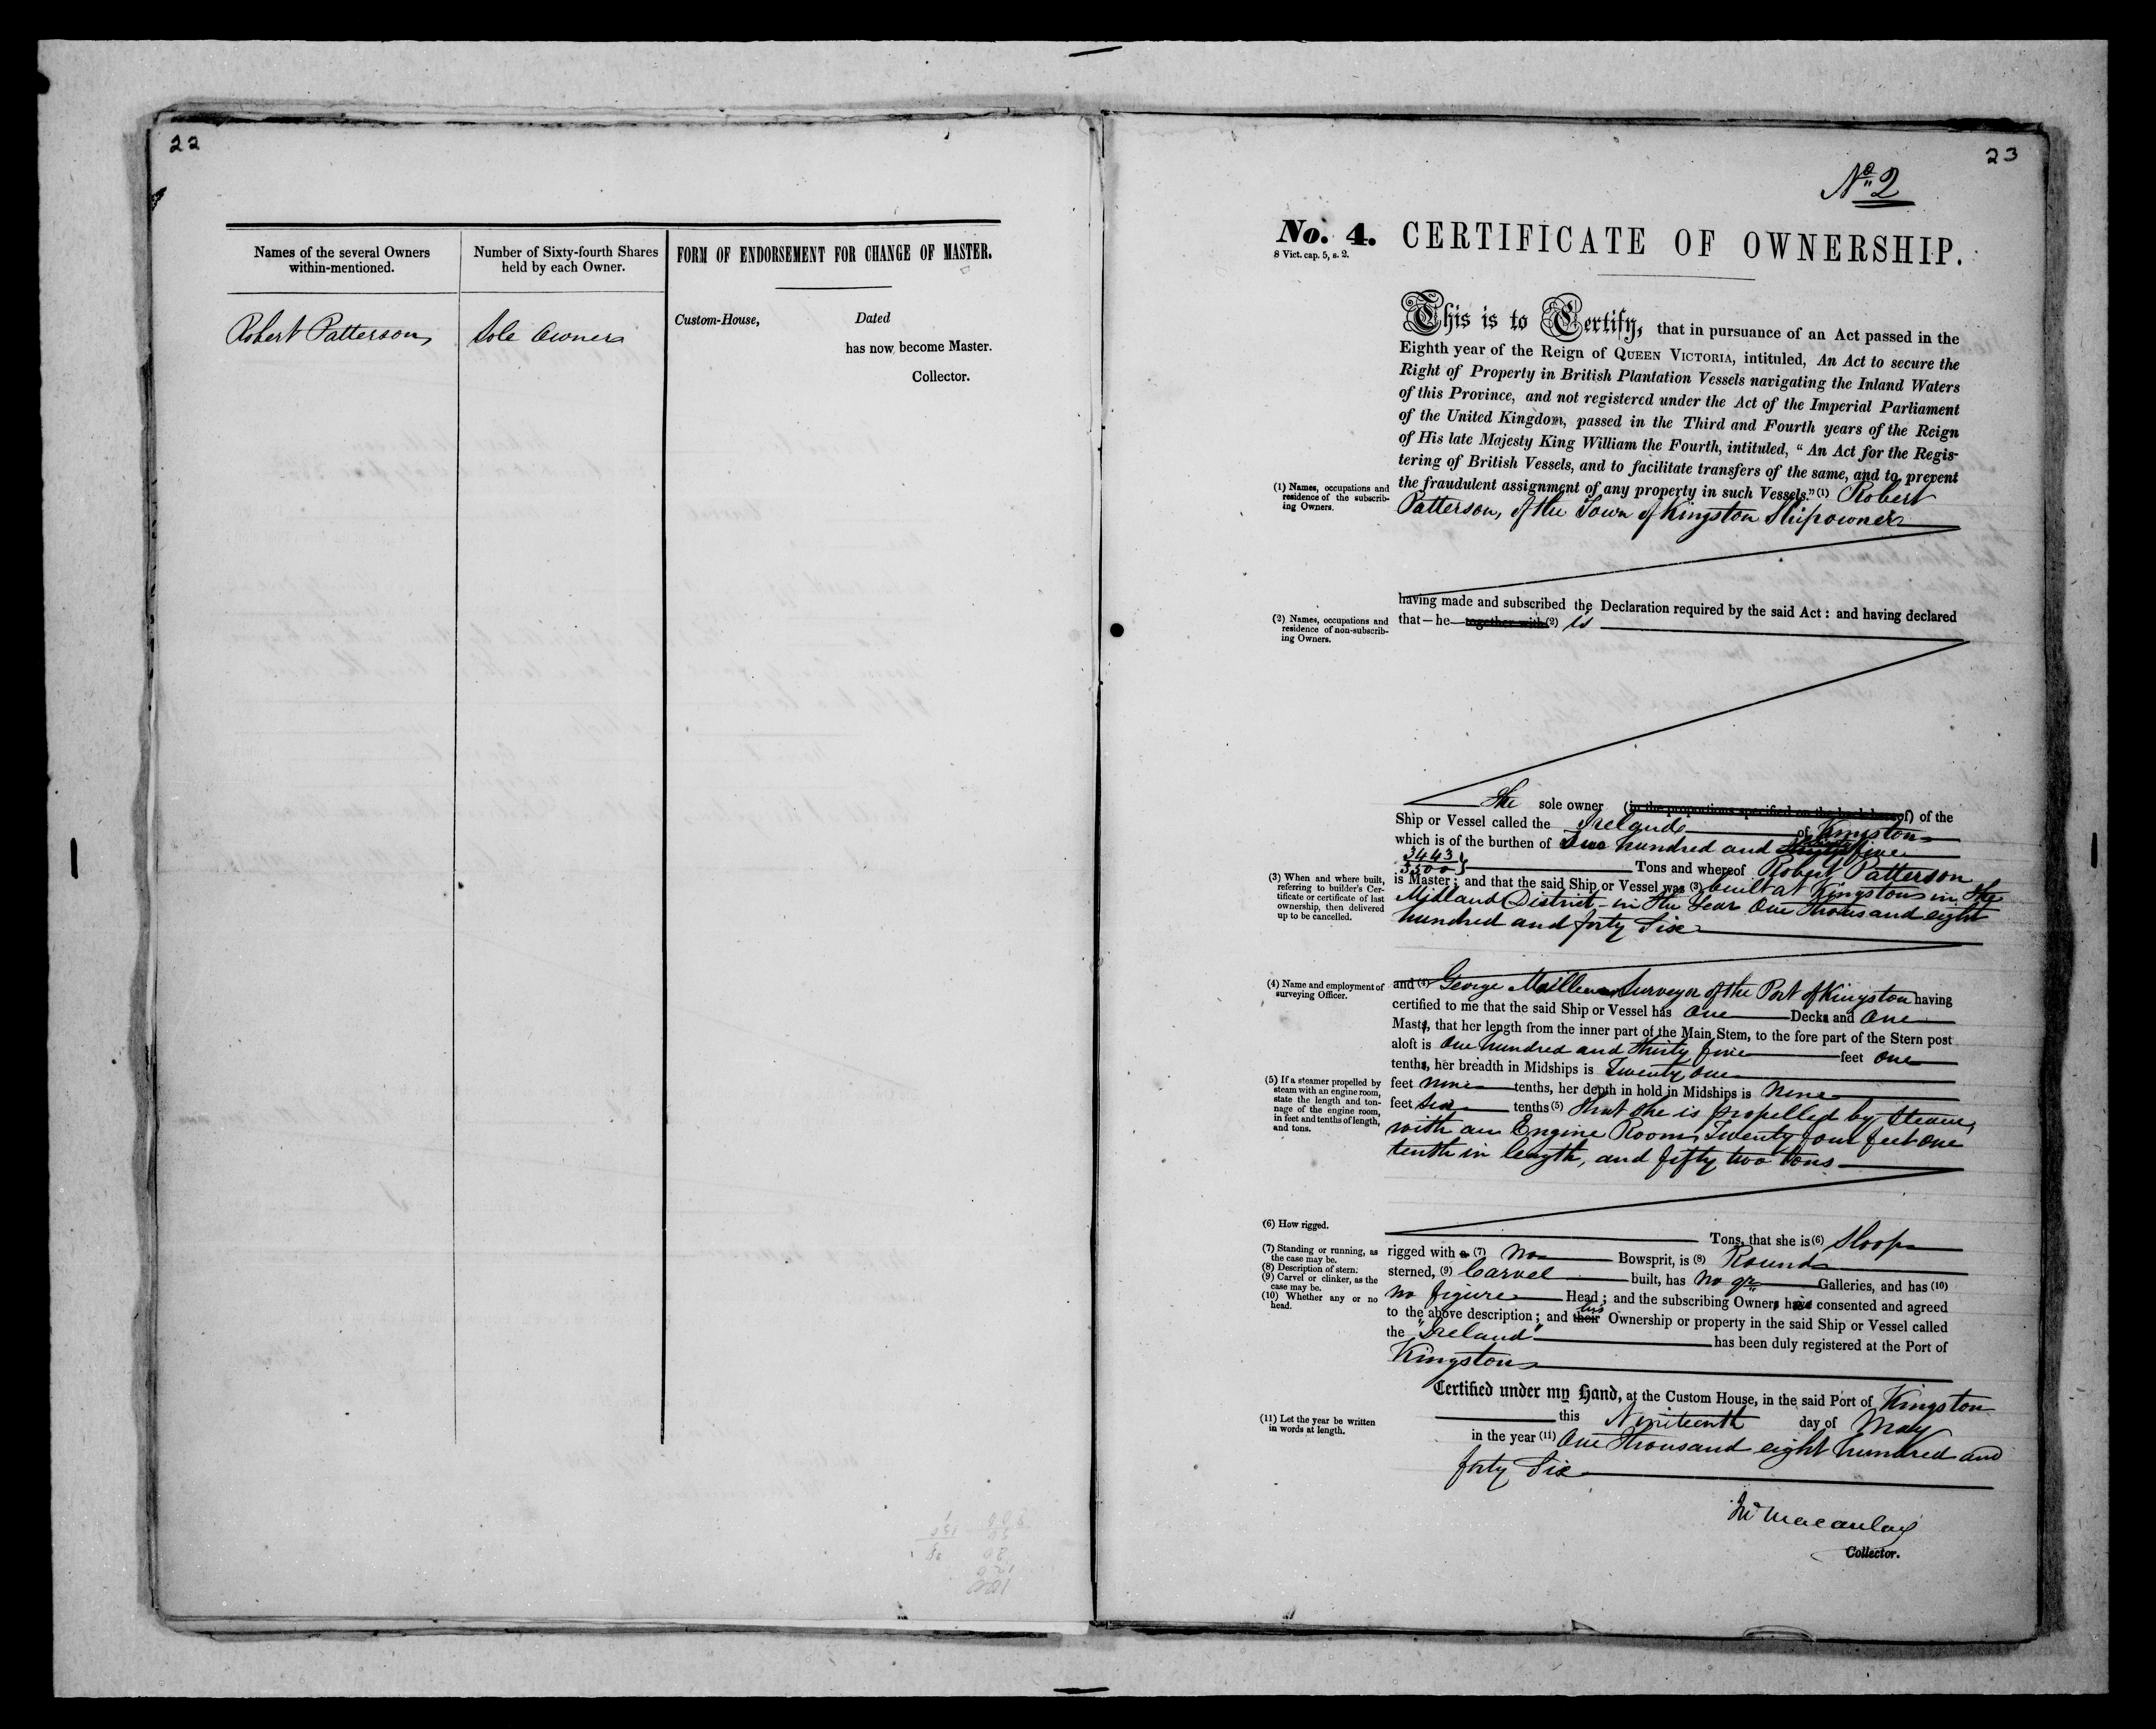 22
Names of the several Owners
within-mentioned.
Number of Sixty-fourth Shares
held by each Owner.
FORM OF ENDORSEMENT FOR CHANGE OF MASTER.
Robert Patterson
Sole Owner
Custom-House, Dated
has now become Master.
Collector.
23
No 2
No. 4. CERTIFICATE OF OWNERSHIP.
8 Vict. cap. 5, s. 2.
This is to Certify, that in pursuance of an Act passed in the
Eighth year of the Reign of QUEEN VICTORIA, intituled, An Act to secure the
Right of Property in British Plantation Vessels navigating the Inland Waters
of this Province, and not registered under the Act of the Imperial Parliament
of the United Kingdom, passed in the Third and Fourth years of the Reign
of His late Majesty King William the Fourth, intituled, “ An Act for the Regis-
tering of British Vessels, and to facilitate transfers of the same, and to prevent
the fraudulent assignment of any property in such Vessels.” (1) Robert
Patterson, of the Town of Kingston Shipowner
(1) Names, occupations and
residence of the subscrib-
ing Owners.
having made and subscribed the Declaration required by the said Act : and having declared
that — he together with (2) is
(2) Names, occupations and
residence of non-subscrib-
ing Owners.
the sole owner (in the proportions specified on the back hereof) of the
Ship or Vessel called the Ireland of Kingston
which is of the burthen of Two hundred and five
3443
3500 } Tons and whereof Robert Patterson
is Master ; and that the said Ship or Vessel was (3) built at Kingston in the
Midland District - in the Year One thousand eight
hundred and forty Six
(3) When and where built,
referring to builder's Cer-
tificate or certificate of last
ownership, then delivered
up to be cancelled.
and (4) George Surveyor of the Port of Kingston having
certified to me that the said Ship or Vessel has One Decks and One
Masts, that her length from the inner part of the Main Stem, to the fore part of the Stern post
aloft is One hundred and thirty five feet One
tenths, her breadth in Midships is Twenty One
feet nine tenths, her depth in hold in Midships is Nine
feet Six tenths (5) that she is propelled by Steam,
with an Engine Room, Twenty four feet One
tenth in length, and fifty two tons
(4) Name and employment of
surveying Officer.
(5) If a steamer propelled by
steam with an engine room,
state the length and ton-
nage of the engine room,
in feet and tenths of length,
and tons.
Tons, that she is (6) Sloop
rigged with a (7) No Bowsprit, is (8) Round
sterned, (9) Carvel built, has no qr Galleries, and has (10)
no figure Head ; and the subscribing Owners have consented and agreed
to the above description ; and their his Ownership or property in the said Ship or Vessel called
the "Ireland" has been duly registered at the Port of
Kingston
(6) How rigged.
(7) Standing or running, as
the case may be.
(8) Description of stern.
(9) Carvel or clinker, as the
case may be.
(10) Whether any or no
head.
Certified under my Hand, at the Custom House, in the said Port of Kingston
this Nineteenth day of May
in the year (11) One Thousand eight hundred and
forty Six
(11) Let the year be written
in words at length.
Macaulay
Collector.